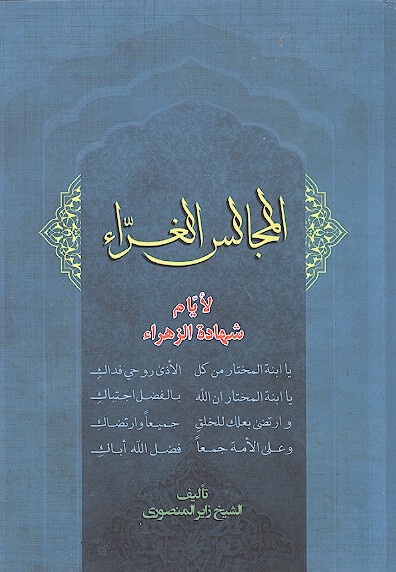 المجالس الغرّاء
لأيّام
شهادة الزهراء
يا ابنة المختار من كل الأذى روحي فداك
يا ابنة المختار ان الله بالفضل اجتباك
وارتضى بعلك للخلق جميعاً وارتضاك
وعلى الأمة جمعاً فضل الله أباك
تأليف
الشيخ زاير المنصوري